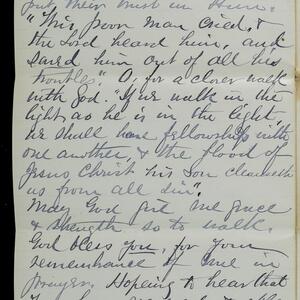 put their trust in Him.
"This poor man cried, &
the Lord heard him, and
saved him out of all his
troubles." O, for a closer walk
with God. "If we walk in the
light, as he is in the light,
we shall have fellowship with
one another, & the blood of
Jesus Christ his Son cleanseth
us from all sin."
May God give me grace
& strength so to walk.
God bless you, for your
remembrance of me in
prayer. Hopeing to hear that